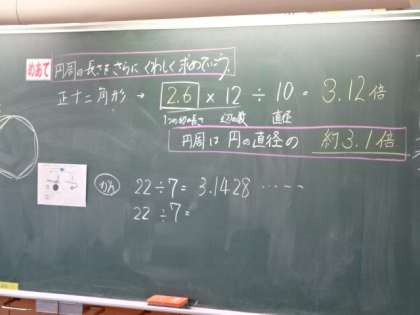 めあて 円周の長さをさらにくわしく求めていこう。
正十二角形 → 2.6 × 12 ÷ 10 = 3.12倍
1つの辺の長さ 辺の数 直径
円周は円の直径の 約3.1倍
22÷7= 3.1428 ・・・・・
22÷7=